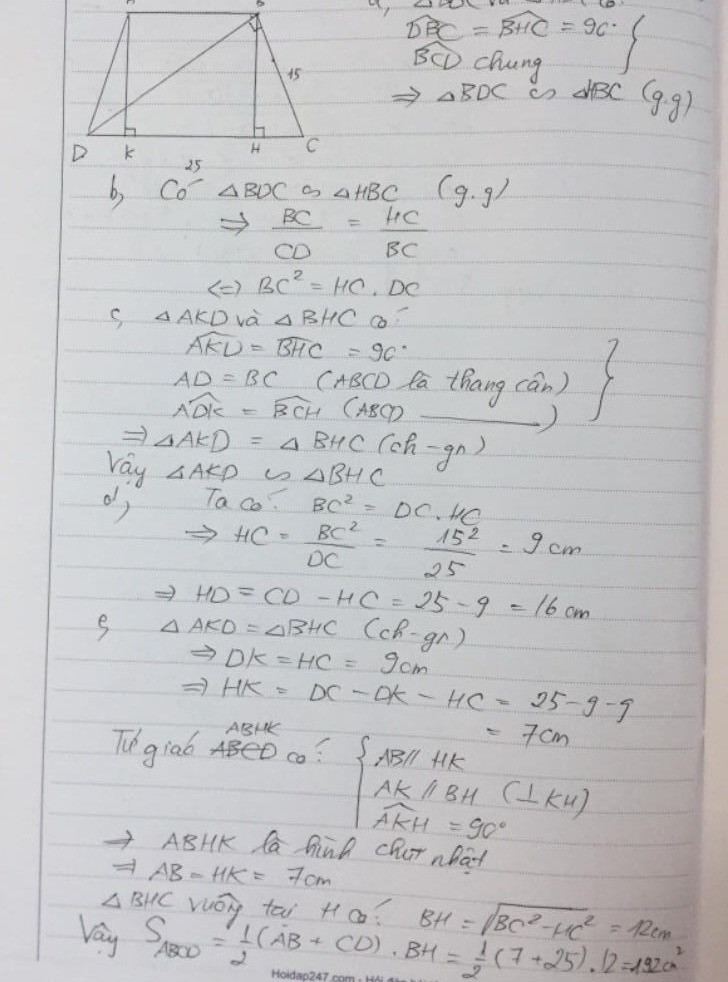 B
15
D K H C
25
a,
DBC = BHC = 90°
BCD chung
⇒ △BDC ∽ △HBC (g.g)
b, Có △BDC ∽ △HBC (g.g)
⇒ BC/CD = HC/BC
<=> BC² = HC . DC
c, △AKD và △BHC có:
AKD = BHC = 90°
AD = BC (ABCD là thang cân)
ADK = BCH (ABCD ———)
⇒ △AKD = △BHC (ch-gn)
Vậy △AKD ∽ △BHC
d, Ta có: BC² = DC.HC
⇒ HC = BC²/DC = 15²/25 = 9 cm
⇒ HD = CD - HC = 25 - 9 = 16 cm
e, △AKD = △BHC (ch-gn)
⇒ DK = HC = 9cm
⇒ HK = DC - DK - HC = 25-9-9
= 7cm
ABHK
Tứ giác ABCD có: { AB // HK
AK // BH (⊥KH)
AKH = 90°
⇒ ABHK là hình chữ nhật
⇒ AB = HK = 7cm
△BHC vuông tại H có: BH = √BC²-HC² = 12cm
Vậy S ABCD = 1/2 (AB + CD) . BH = 1/2 (7+25).12 = 192cm²
Hoidap247.com